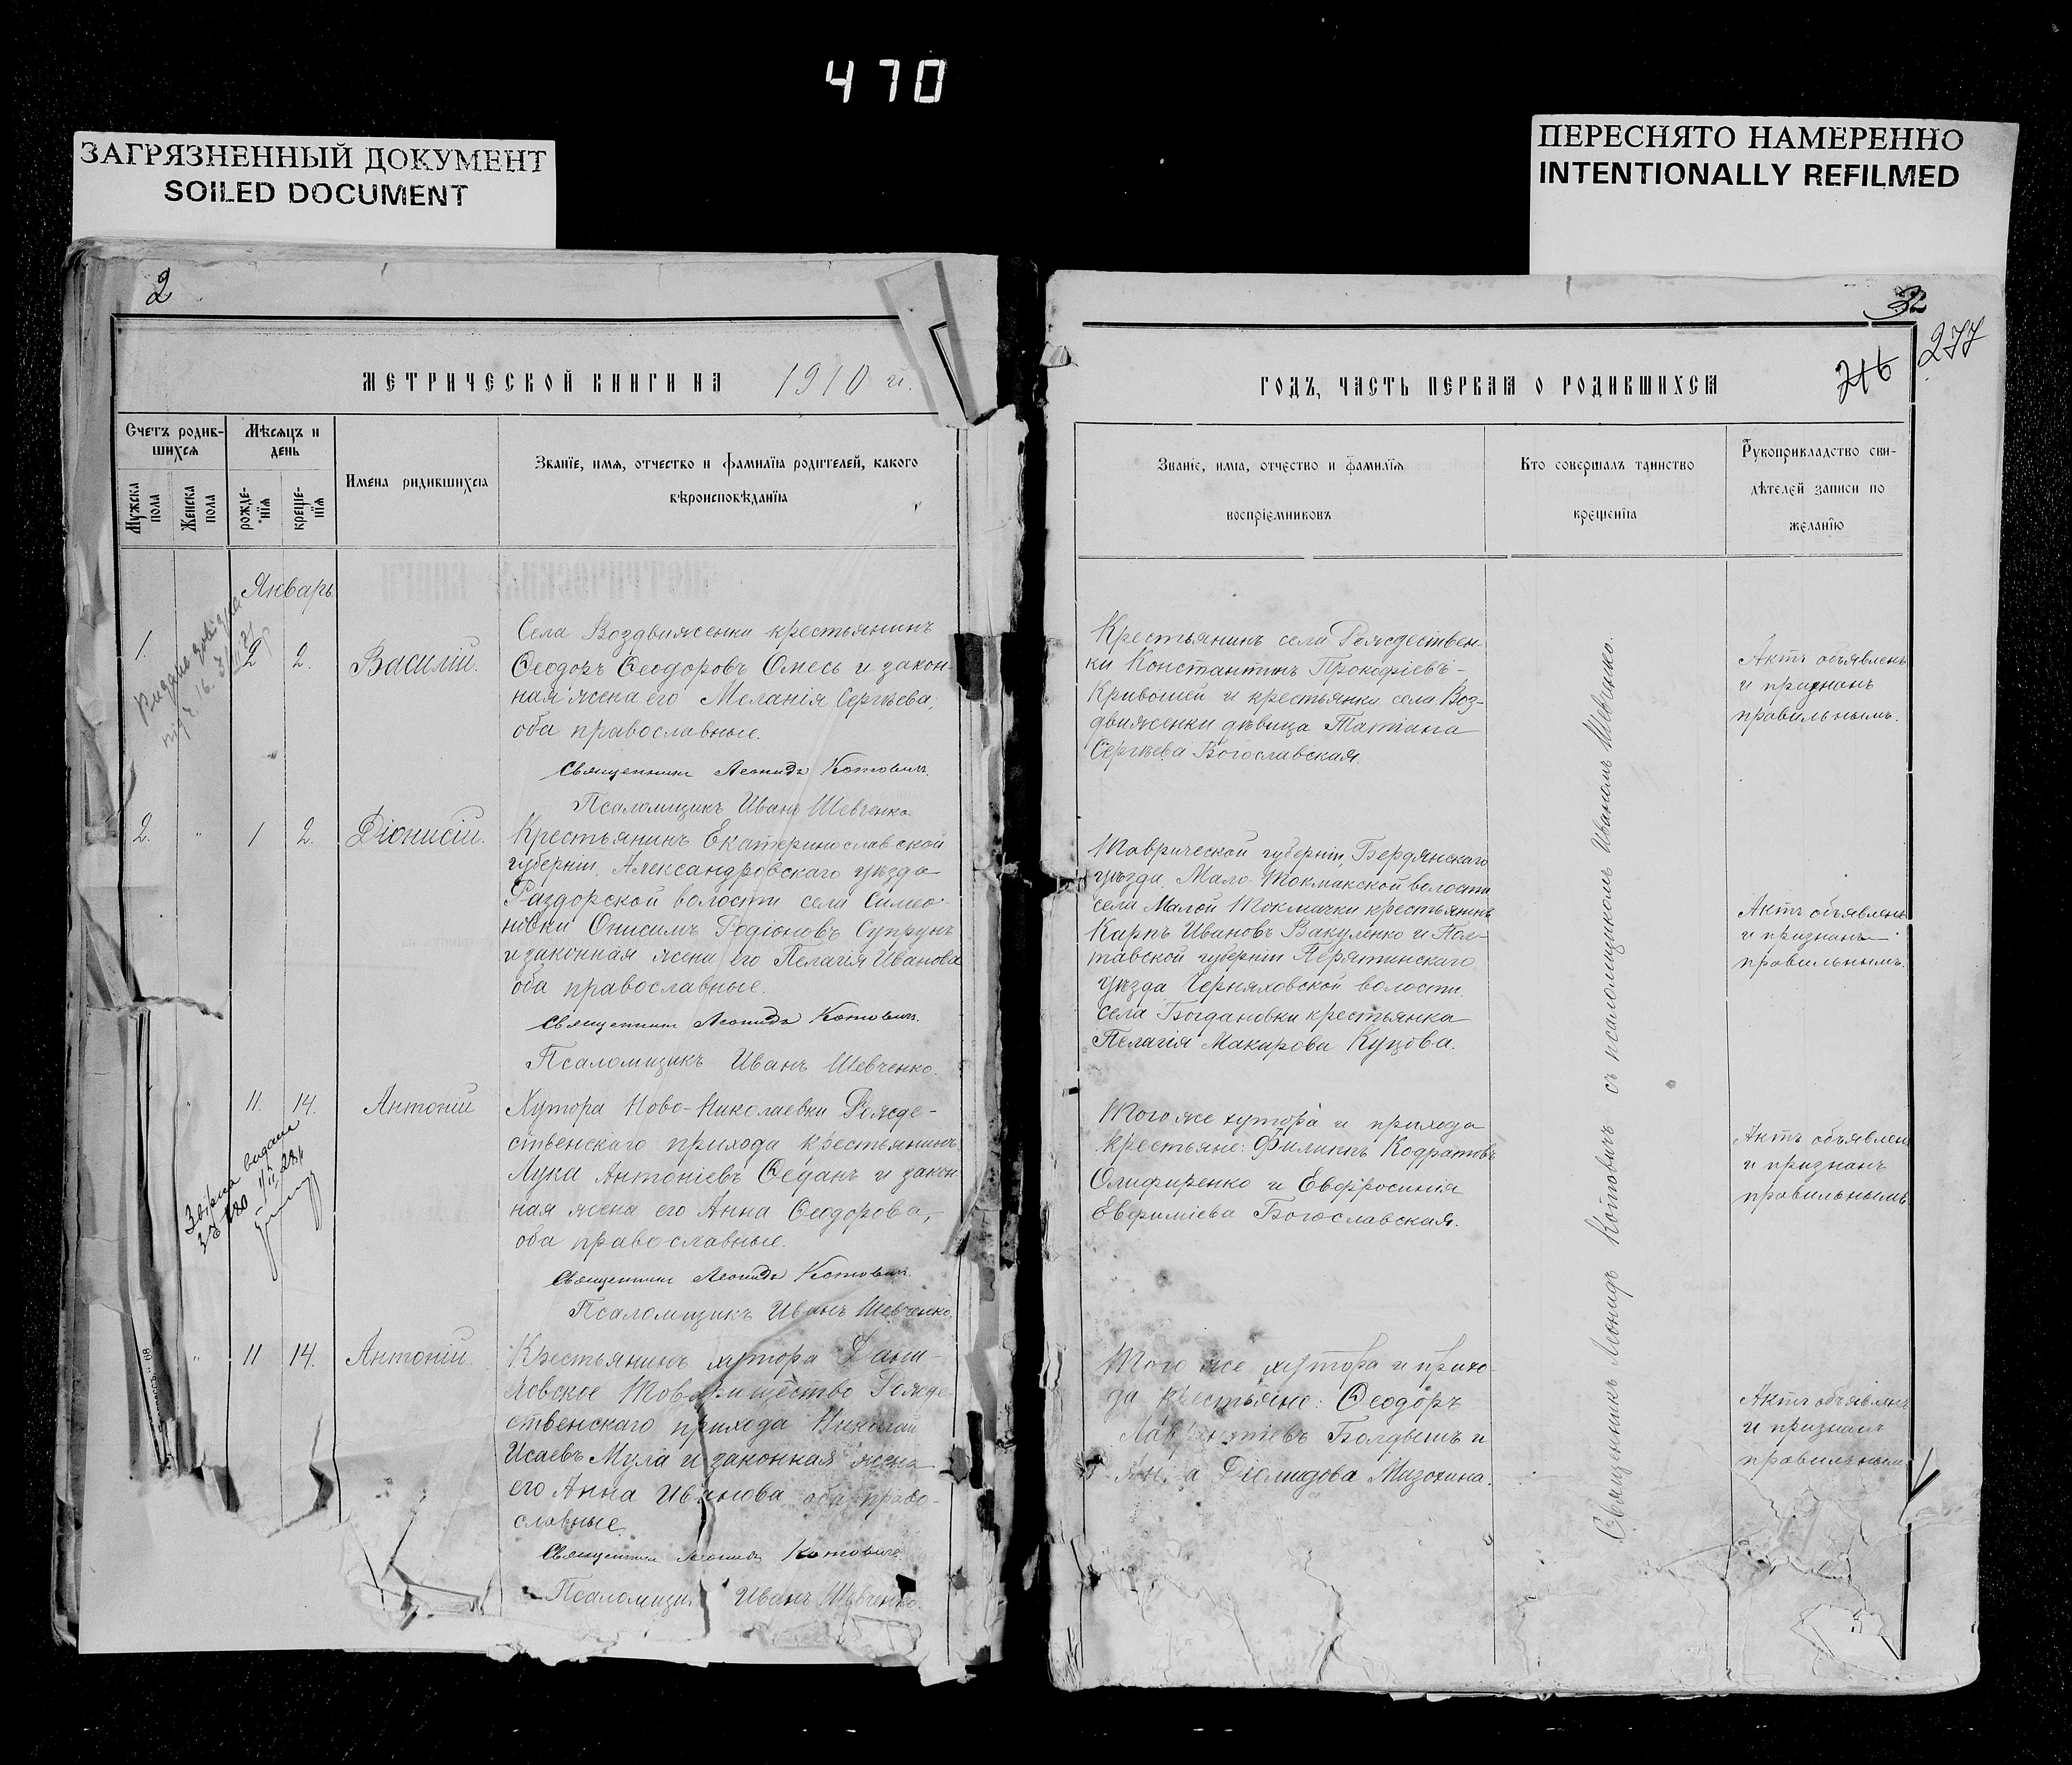 470
ЗАГРЯЗНЕННЫЙ ДОКУМЕНТ
SOILED DOCUMENT
ПЕРЕСНЯТО НАМЕРЕННО
INTENTIONALLY REFILMED
2
МЕТРИЧЕСКОЙ КНИГИ НА 1910 г.
Счетъ родив-
шихся
Мѣсяцъ и
день
Мужска
пола
Женска
пола
рожде-
нія
креще-
нія
Имена родившихся
Званіе, имя, отчество и фамилія родителей, какого
вѣроисповѣданія
Январь
1. 2 2. Василій.
Села Воздвиженки крестьянинъ
Ѳеодоръ Ѳеодоровъ Омесь и закон-
ная жена его Меланія Сергѣева,
оба православные.
Священникъ Леонидъ Котовичъ.
Псаломщикъ Иванъ Шевченко.
2. " 1 2. Діонисій.
Крестьянинъ Екатеринославской
губерніи, Александровскаго уѣзда
Раздорской волости села Симео-
новки Онисимъ Родіоновъ Супрунъ
и законная жена его Пелагія Иванова
оба православные.
Священникъ Леонидъ Котовичъ.
Псаломщикъ Иванъ Шевченко.
" 11. 14. Антоній
Звірка видана
Хутора Ново-Николаевки Рожде-
ственскаго прихода крестьянинъ
Лука Антоніевъ Ѳеданъ и закон
ная жена его Анна Ѳеодорова,
оба православные.
Священникъ Леонидъ Котовичъ.
Псаломщикъ Иванъ Шевченко.
" 11 14. Антоній.
Крестьянинъ хутора Дани-
ловское Товарищество Рожде-
ственскаго прихода Николай
Исаевъ Мула и законная жена
его Анна Иванова оба право-
славные.
Священникъ Леонидъ Котовичъ.
Псаломщикъ Иванъ Шевченко.
277
ГОДЪ, ЧАСТЬ ПЕРВАЯ О РОДИВШИХСЯ
Званіе, имя, отчество и фамилія
воспріемниковъ
Кто совершалъ таинство
крещенія
Рукоприкладство сви-
дѣтелей записи по
желанію
Крестьянинъ села Рождествен-
ки Константинъ Прокофіевъ-
Кривошей и крестьянка села Воз-
движенки дѣвица Татіана
Сергѣева Богославская.
Актъ объявленъ
и признанъ
правильнымъ.
Таврической губерніи, Бердянскаго
уѣзда, Мало-Токмакской волости
села Малой Токмачки крестьянинъ
Карпъ Ивановъ Вакуленко и Пол-
тавской губерніи Пирятинскаго
уѣзда Черняховской волости
села Богдановки крестьянка
Пелагія Макарова Куцова.
Актъ объявленъ
и признанъ
правильнымъ.
Того же хутора и прихода
крестьяне: Филиппъ Кодратовъ
Олифиренко и Евфросинія
Евфиміева Богославская.
Актъ объявленъ
и признанъ
правильнымъ
Того же хутора и прихо-
да крестьяне: Ѳеодоръ
Лаврентіевъ Болдышъ и
Діомидова Мизохина.
Актъ объявленъ
и признанъ
правильнымъ
Священникъ Леонидъ Котовичъ съ псаломщикомъ Иваномъ Шевченко.